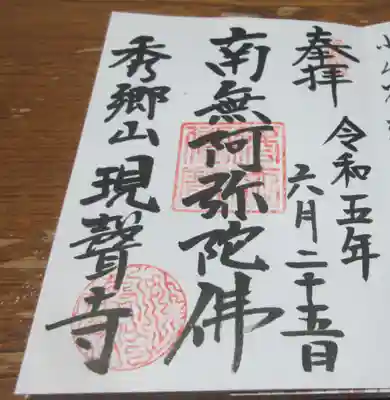 奉拝
令和五年
六月二十五日
南無阿弥陀佛
秀郷山 現聲寺